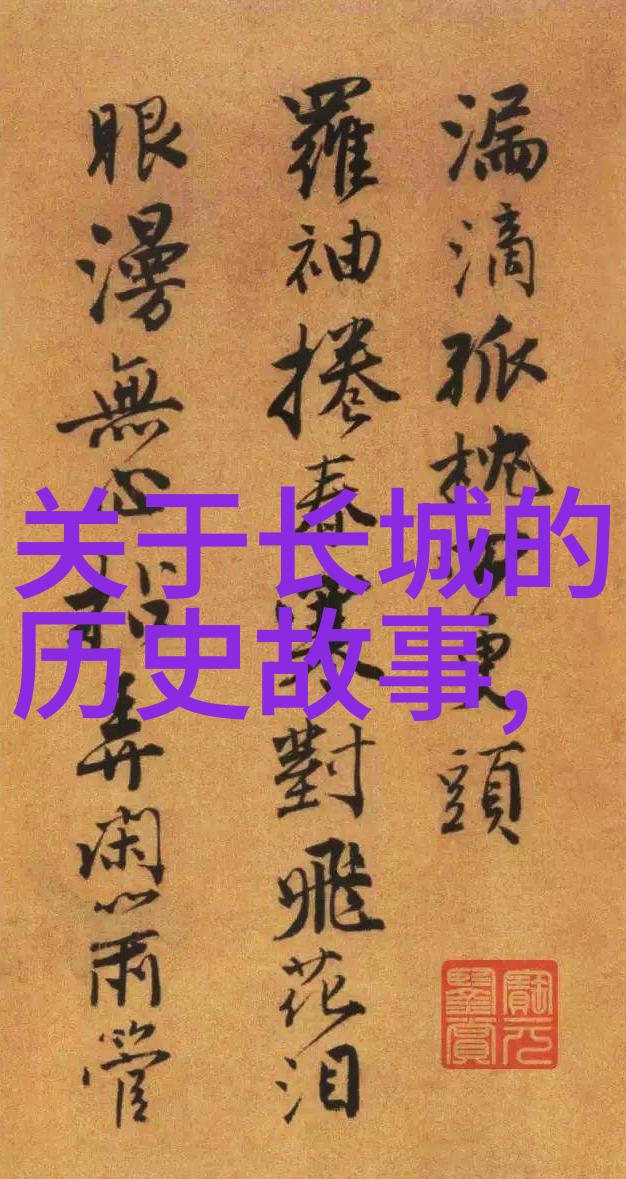 关于长城的
历史故事,
漏滴孤枕頭
羅袖捲春對飛花泪
眼漫無心弄閑管